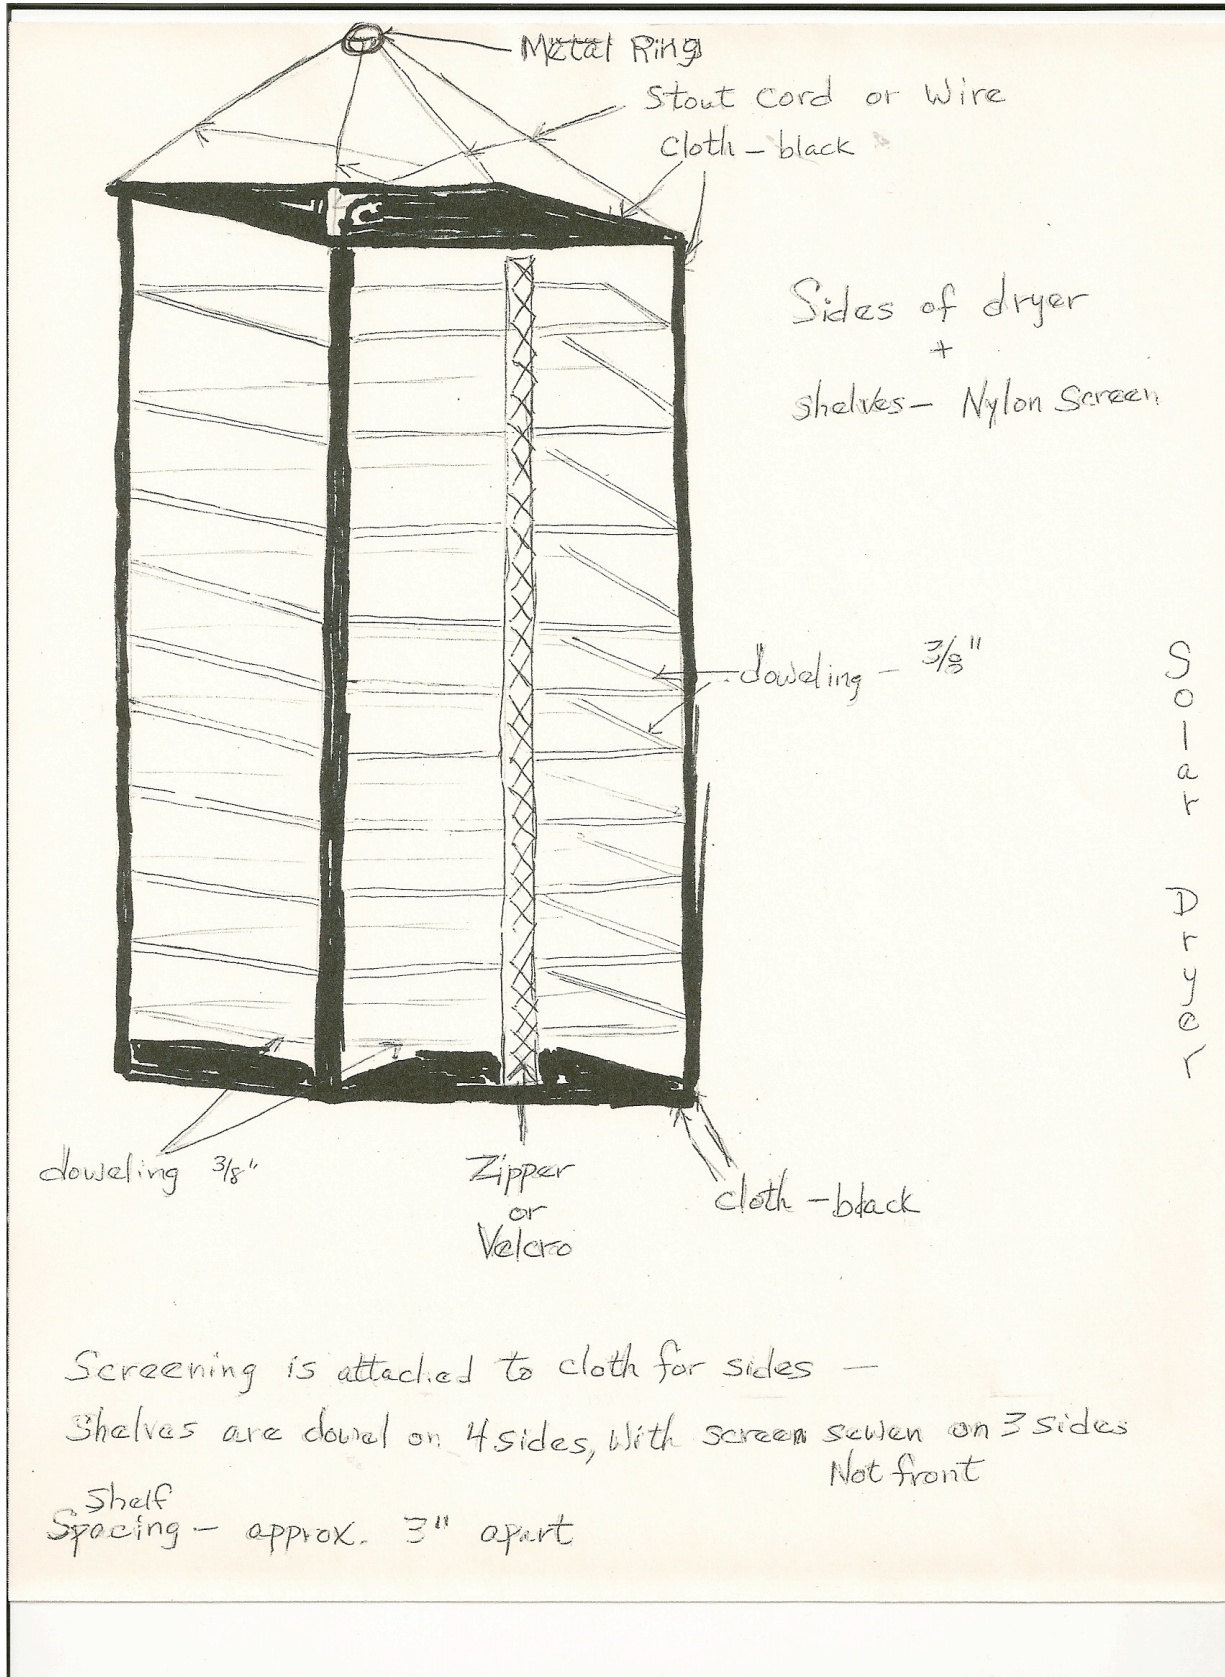 Metal Ring
Stout Cord or Wire
Cloth - black
Sides of dryer
+
shelves - Nylon Screen
doweling - 3/8"
Solar Dryer
doweling 3/8"
Zipper
or
Velcro
cloth - black
Screening is attached to cloth for sides -
Shelves are dowel on 4 sides, With screen sewen on 3 sides
Not front
Shelf
Spacing - approx. 3" apart